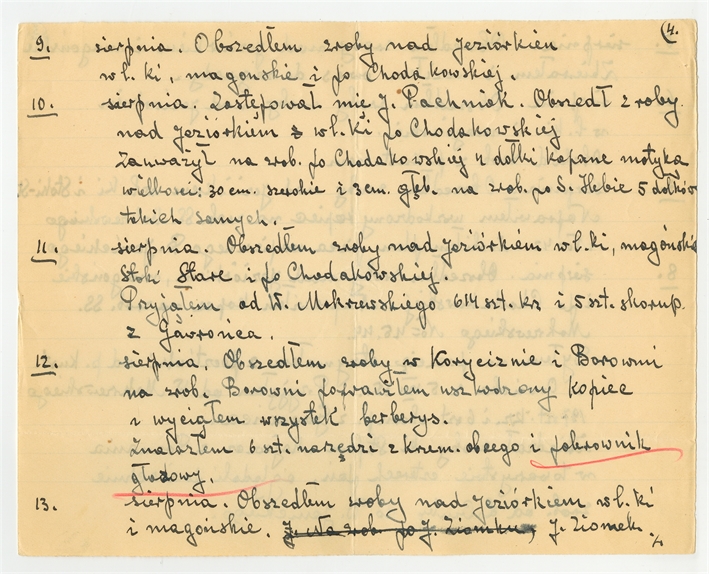 4.
9. sierpnia. Obszedłem zroby nad Jeziórkiem
wł. ki, magońskie i po Chodakowskiej.
10. sierpnia. Zastępował mię J. Pachniak. Obszedł zroby
nad Jeziórkiem z wł. ki po Chodakowskiej
Zauważył na zrob. po Chodakowskiej 4 dołki kopane motyką
wielkości: 30 cm. szerokie i 3 cm. głęb. na zrob. po S. Hebie 5 dołków
takich samych.
11 sierpnia. Obszedłem zroby nad Jeziórkiem wł. ki, magońskie
Stoki Stare i po Chodakowskiej.
Przyjąłem od W. Mokrzewskiego 614 szt. krz i 5 szt. skorup.
z Gawrońca.
12. sierpnia. Obszedłem zroby w Koryciznie i Borowni
na zrob. Borowni poprawiłem uszkodzony kopiec
i wyciąłem wszystek berberys.
Znalazłem 6 szt. narzędzi z krzem. obcego i pobrownik
głazowy.
13. sierpnia. Obszedłem zroby nad Jeziórkiem wł. ki
i magońskie. J. Na zrob. po J. Ziomku, J. Ziomek.